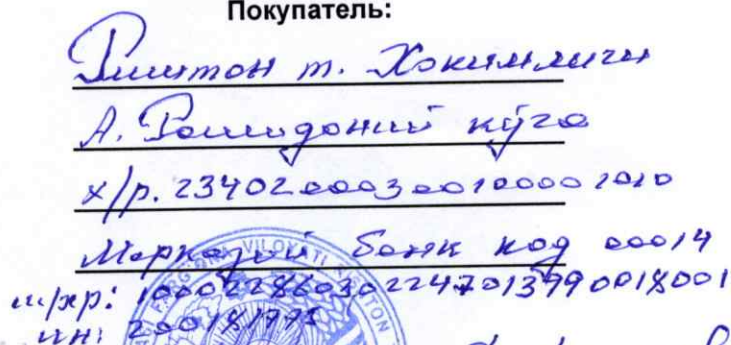 Покупатель:
Риштон т. Хокимлиги
А. Рошидоний кўча
х/р. 23402000300100001010
Марказий банк код 00014
ш/хр: 100022860302247013990018001
инн: 200181775
VILOYATI